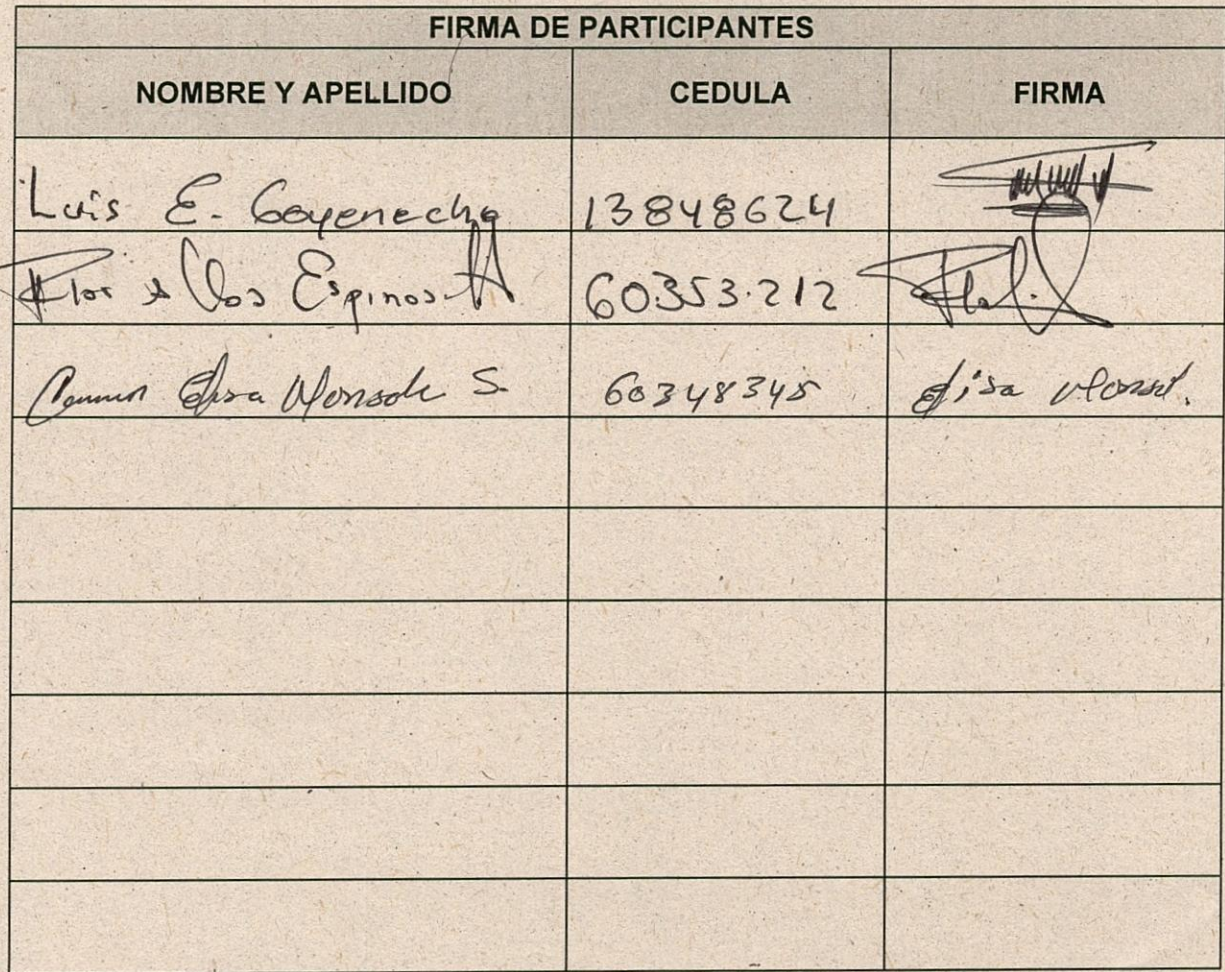 FIRMA DE PARTICIPANTES
NOMBRE Y APELLIDO CEDULA FIRMA
Luis E. Goyeneche 13848624
Flor Espinosa 60353.212
Elisa S. 60348345 Elisa